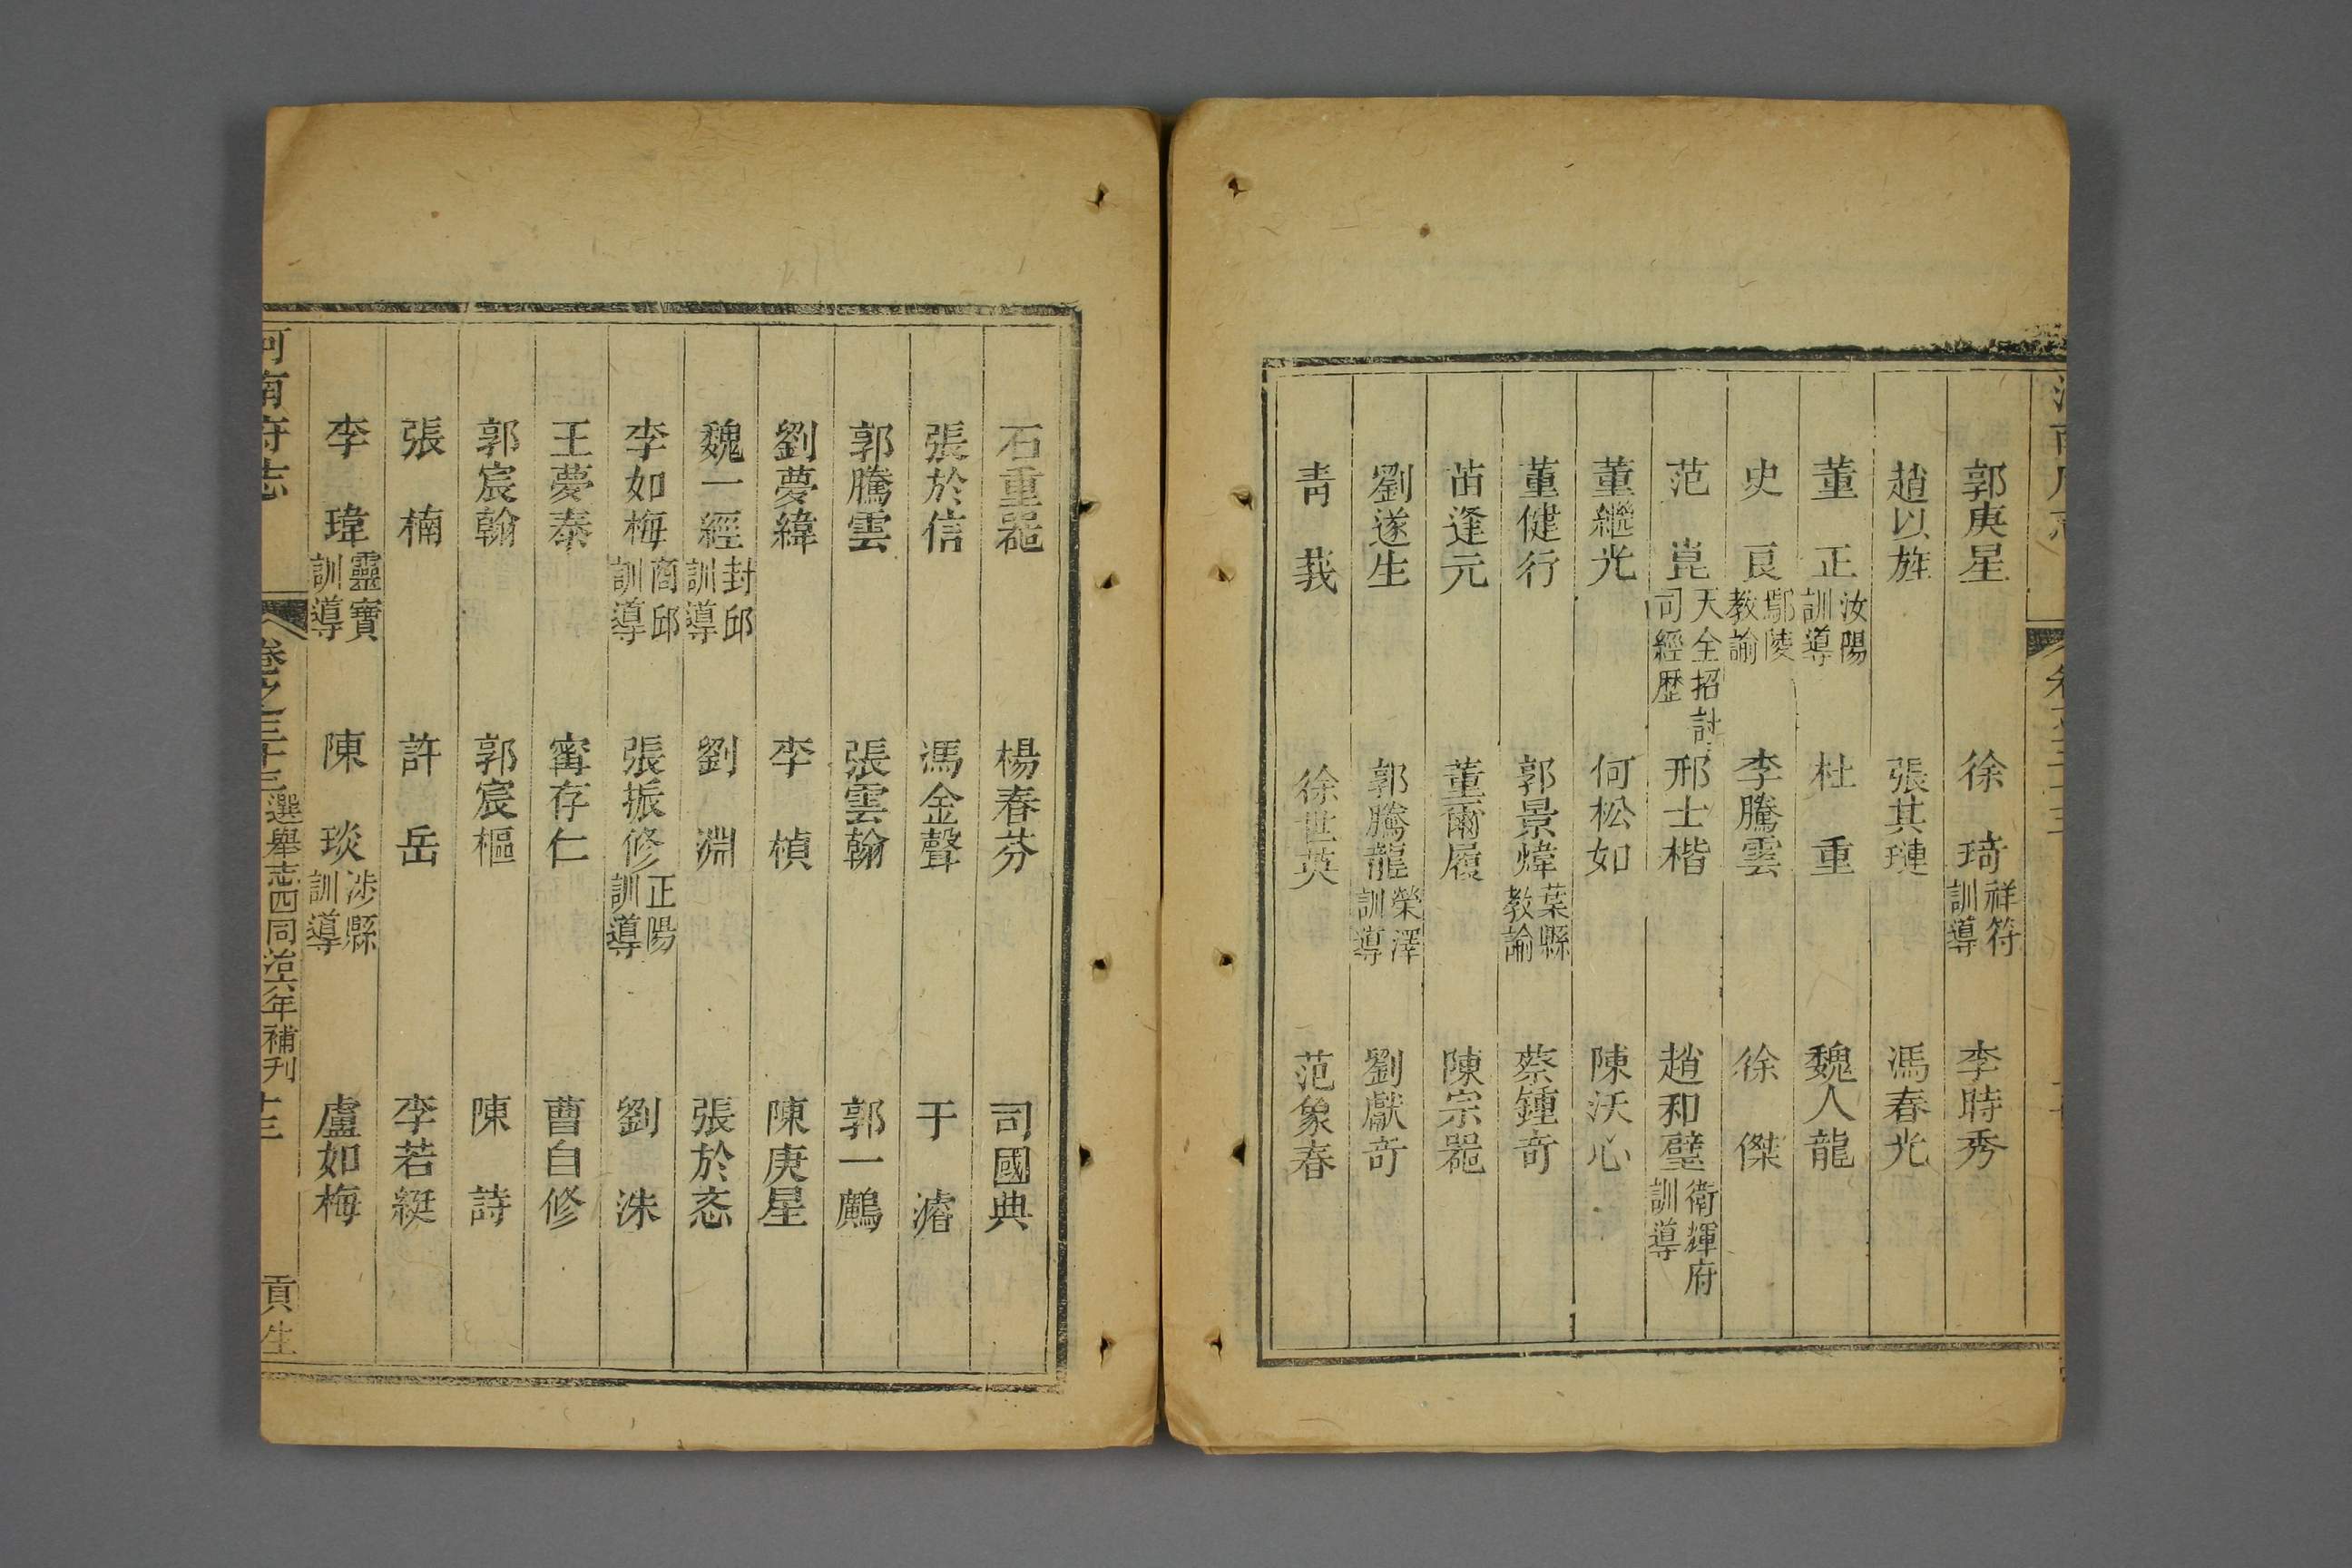 郭庚星 徐琦祥符訓導 李時秀
趙以旌 張其璉 馮春光
董正汝陽訓導 杜重 魏人龍
史良鄢陵教諭 李騰雲 徐傑
范崑天全招討司經歷 邢士楷 趙和璧衛輝府訓導
董繼光 何松如 陳沃心
董健行 郭景煒葉縣教諭 蔡鍾奇
苗逢元 董爾履 陳宗器
劉遂生 郭騰龍榮澤訓導 劉獻奇
青莪 徐世英 范象春
石重器 楊春芬 司國典
張於信 馮金聲 于濬
郭騰雲 張雲翰 郭一鶊
劉夢緯 李楨 陳庚星
魏一經封邱訓導 劉淵 張於忞
李如梅商邱訓導 張振修正陽訓導 劉洙
王夢泰 甯存仁 曹自修
郭宸翰 郭宸樞 陳詩
張楠 許岳 李若綎
李瑋靈寶訓導 陳琰涉縣訓導 盧如梅
河南府志 卷之三十三 選舉志四同治六年補刊 十三 貢生